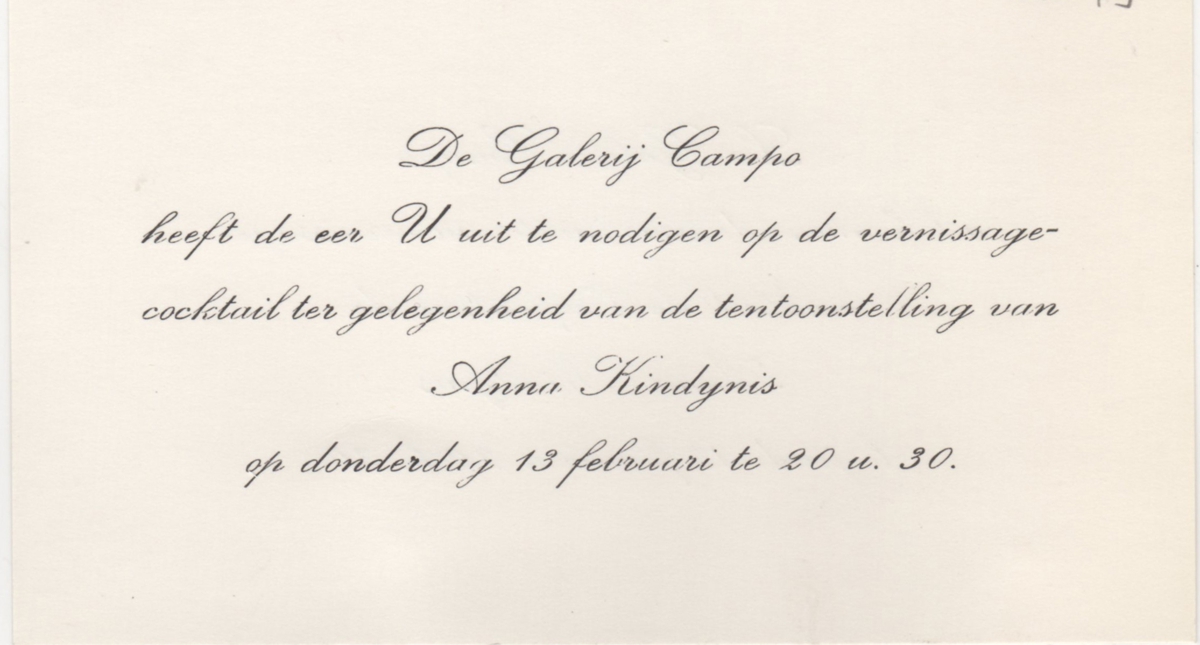 De Galerij Campo
heeft de eer U uit te nodigen op de vernissage-
cocktail ter gelegenheid van de tentoonstelling van
Anna Kindynis
op donderdag 13 februari te 20 u. 30.